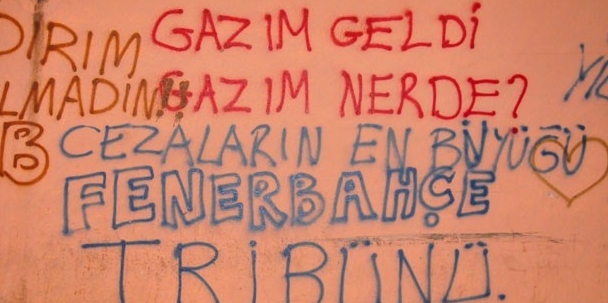 DIRIM
LMADIN!!
GAZIM GELDİ
GAZIM NERDE?
B
CEZALARIN EN BÜYÜĞÜ
FENERBAHÇE
TRİBÜNÜ.